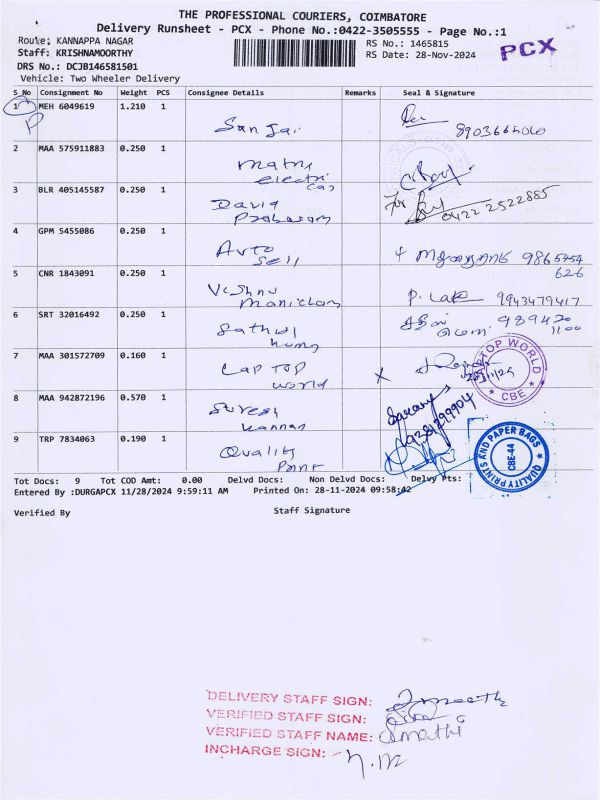 THE PROFESSIONAL COURIERS, COIMBATORE
Delivery Runsheet - PCX - Phone No.:0422-3505555 - Page No.:1
Route: KANNAPPA NAGAR RS No.: 1465815 PCX
Staff: KRISHNAMOORTHY RS Date: 28-Nov-2024
DRS No.: DCJB146581501
Vehicle: Two Wheeler Delivery
S_No Consignment No Weight PCS Consignee Details Remarks Seal & Signature
1 MEH 6049619 1.210 1
Sanjai
2 MAA 575911883 0.250 1
electri
cas
3 BLR 405145587 0.250 1
David For 0422 2522885
4 GPM 5455086 0.250 1
Auto
Sell
5 CNR 1843091 0.250 1 626
Vishnu
P. 9943479417
6 SRT 32016492 0.250 1
7 MAA 301572709 0.160 1
Lap Top LAPTOP WORLD
world CBE
8 MAA 942872196 0.570 1
Suresh
Kannan
9 TRP 7834063 0.190 1
Quality QUALITY PRINTS AND PAPER BAGS
Print CBE-44
Tot Docs: 9 Tot COD Amt: 0.00 Delvd Docs: Non Delvd Docs: Delvy Pts:
Entered By :DURGAPCX 11/28/2024 9:59:11 AM Printed On: 28-11-2024 09:58:42
Verified By Staff Signature
DELIVERY STAFF SIGN:
VERIFIED STAFF SIGN:
VERIFIED STAFF NAME:
INCHARGE SIGN: